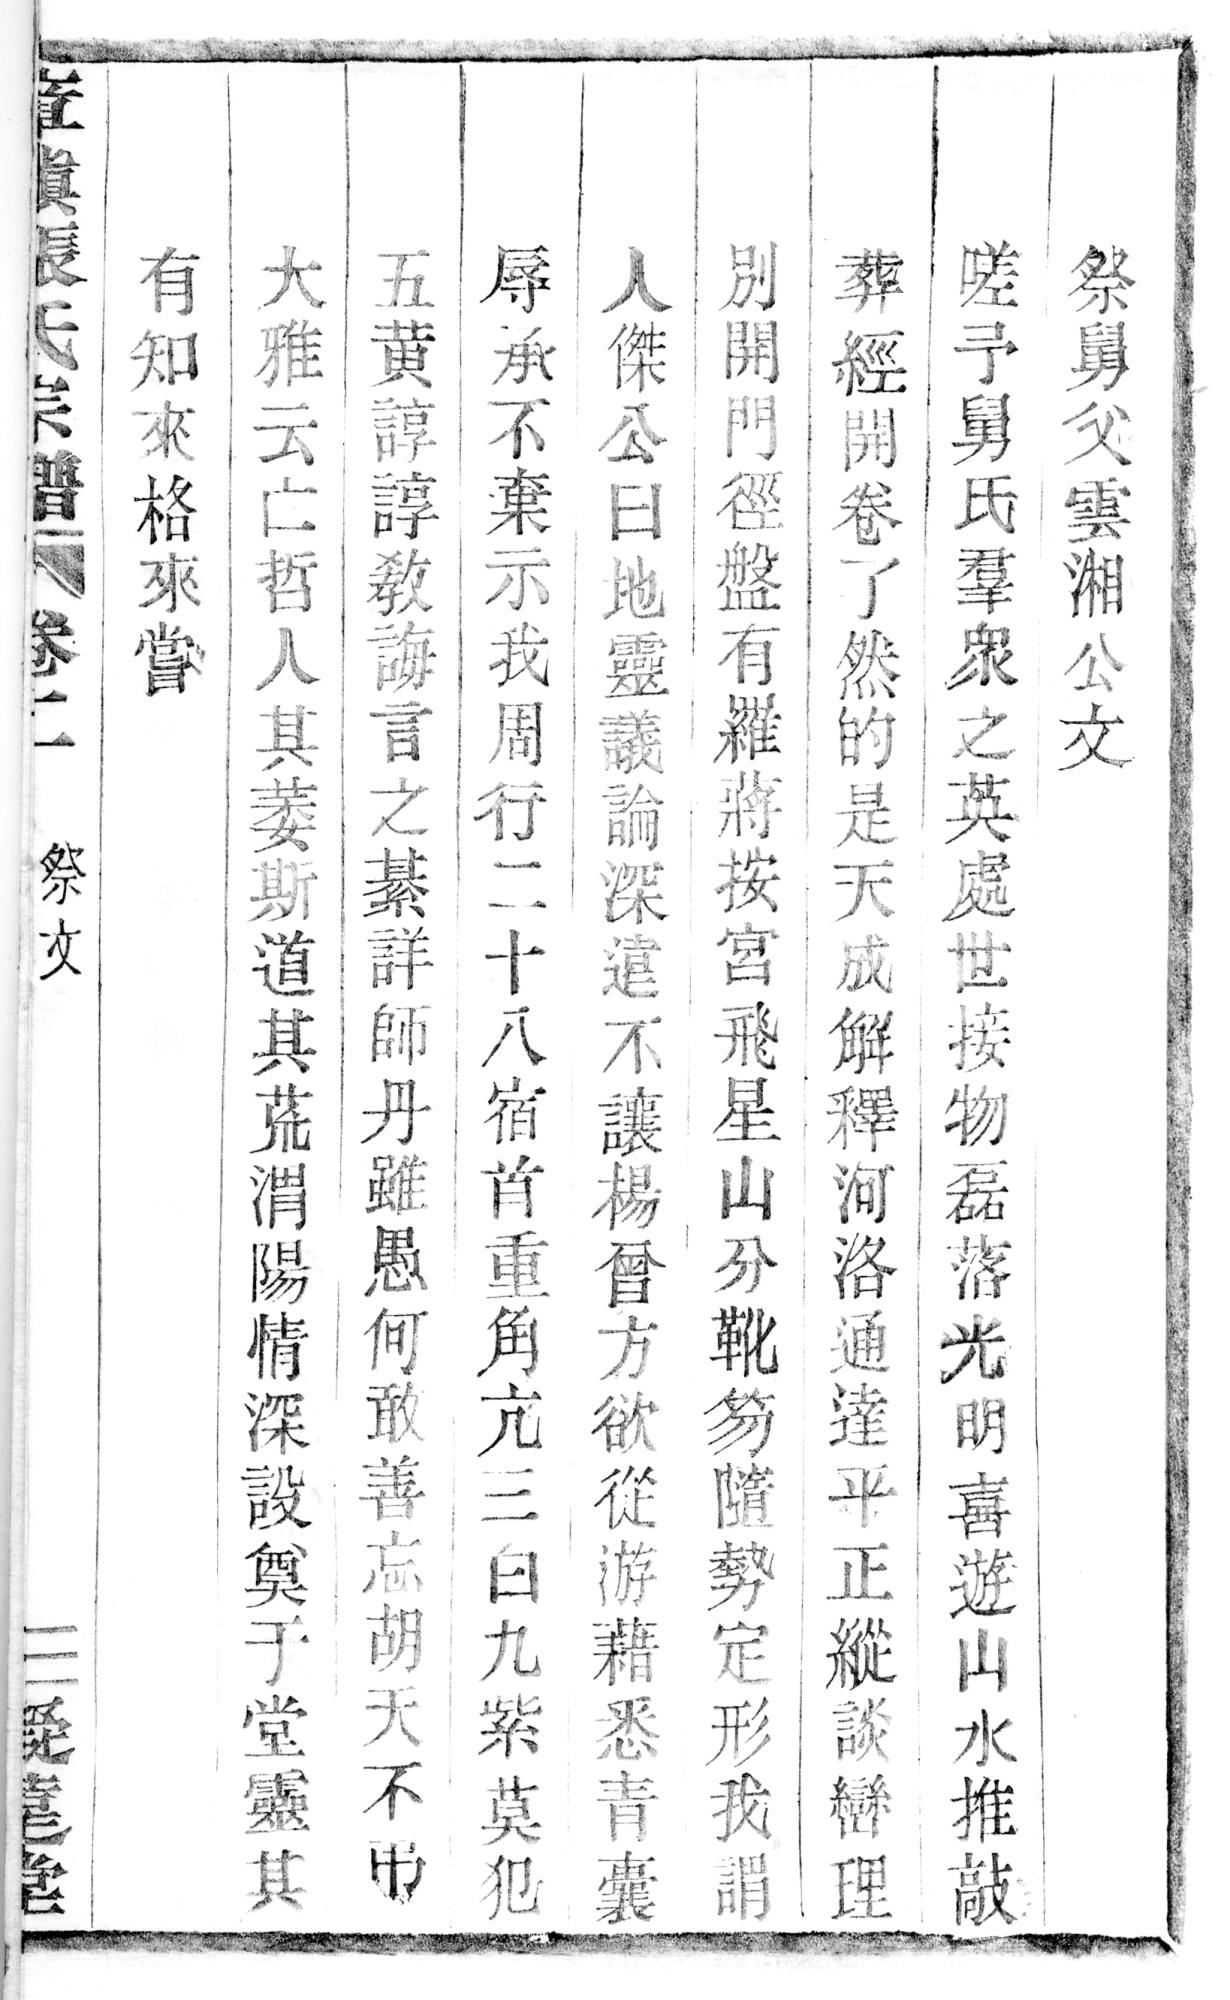 祭舅父雲湘公文
嗟予舅氏羣衆之英處世接物磊落光明喜遊山水推敲
葬經開卷了然的是天成解釋河洛通達平正縱談巒理
別開門徑盤有羅蔣按宮飛星山分靴笏隨勢定形我謂
人傑公曰地靈議論深遠不讓楊曾方欲從游藉悉青囊
辱承不棄示我周行二十八宿首重角亢三白九紫莫犯
五黃諄諄教誨言之綦詳師丹雖愚何敢善忘胡天不弔
大雅云亡哲人其萎斯道其荒渭陽情深設奠于堂靈其
有知來格來嘗
張氏宗譜 卷二 祭文 三 堂